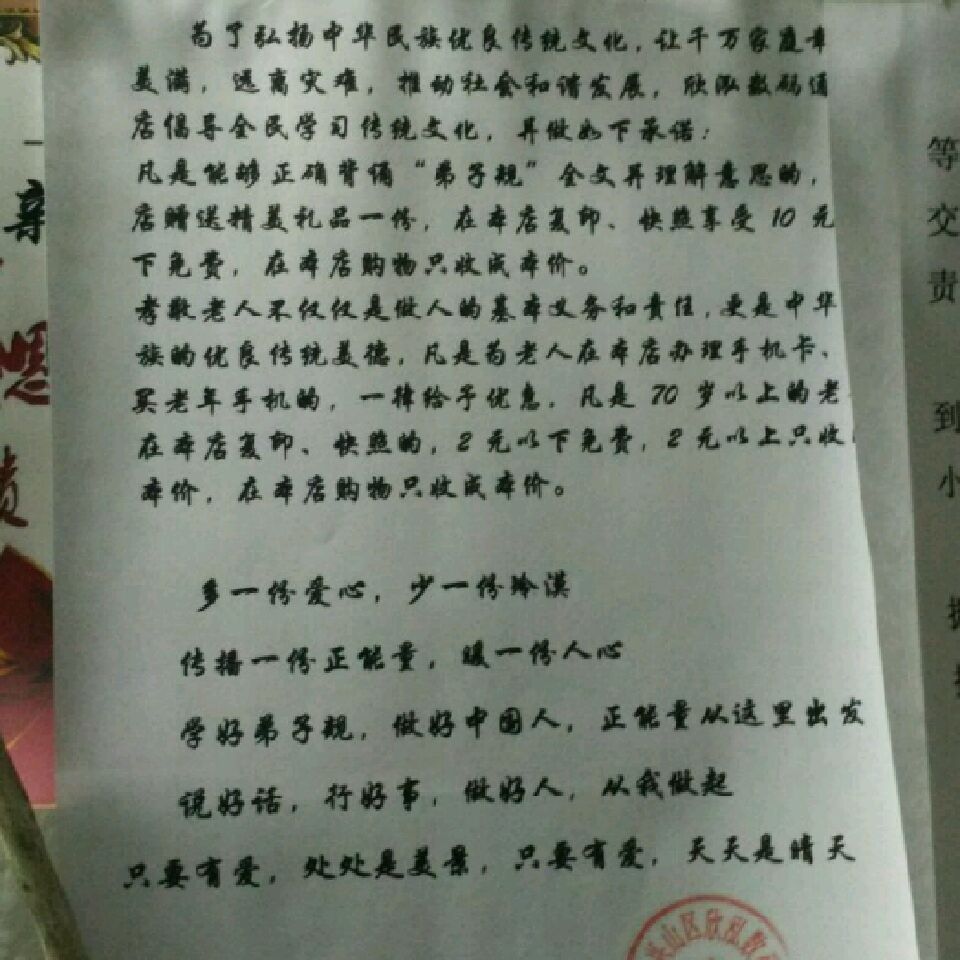 为了弘扬中华民族优良传统文化,让千万家庭幸
美满,远离灾难,推动社会和谐发展,欣泓数码通
店倡导全民学习传统文化,并做如下承诺:
凡是能够正确背诵“弟子规”全文并理解意思的,
店赠送精美礼品一份,在本店复印、快照享受 10 元
下免费,在本店购物只收成本价。
孝敬老人不仅仅是做人的基本义务和责任,更是中华
族的优良传统美德,凡是为老人在本店办理手机卡、
买老年手机的,一律给予优惠,凡是 70 岁以上的老
在本店复印、快照的,2 元以下免费,2 元以上只收
本价,在本店购物只收成本价。
多一份爱心,少一份冷漠
传播一份正能量,暖一份人心
学好弟子规,做好中国人,正能量从这里出发
说好话,行好事,做好人,从我做起
只要有爱,处处是美景,只要有爱,天天是晴天
山区欣泓数
等
交
责
到
小